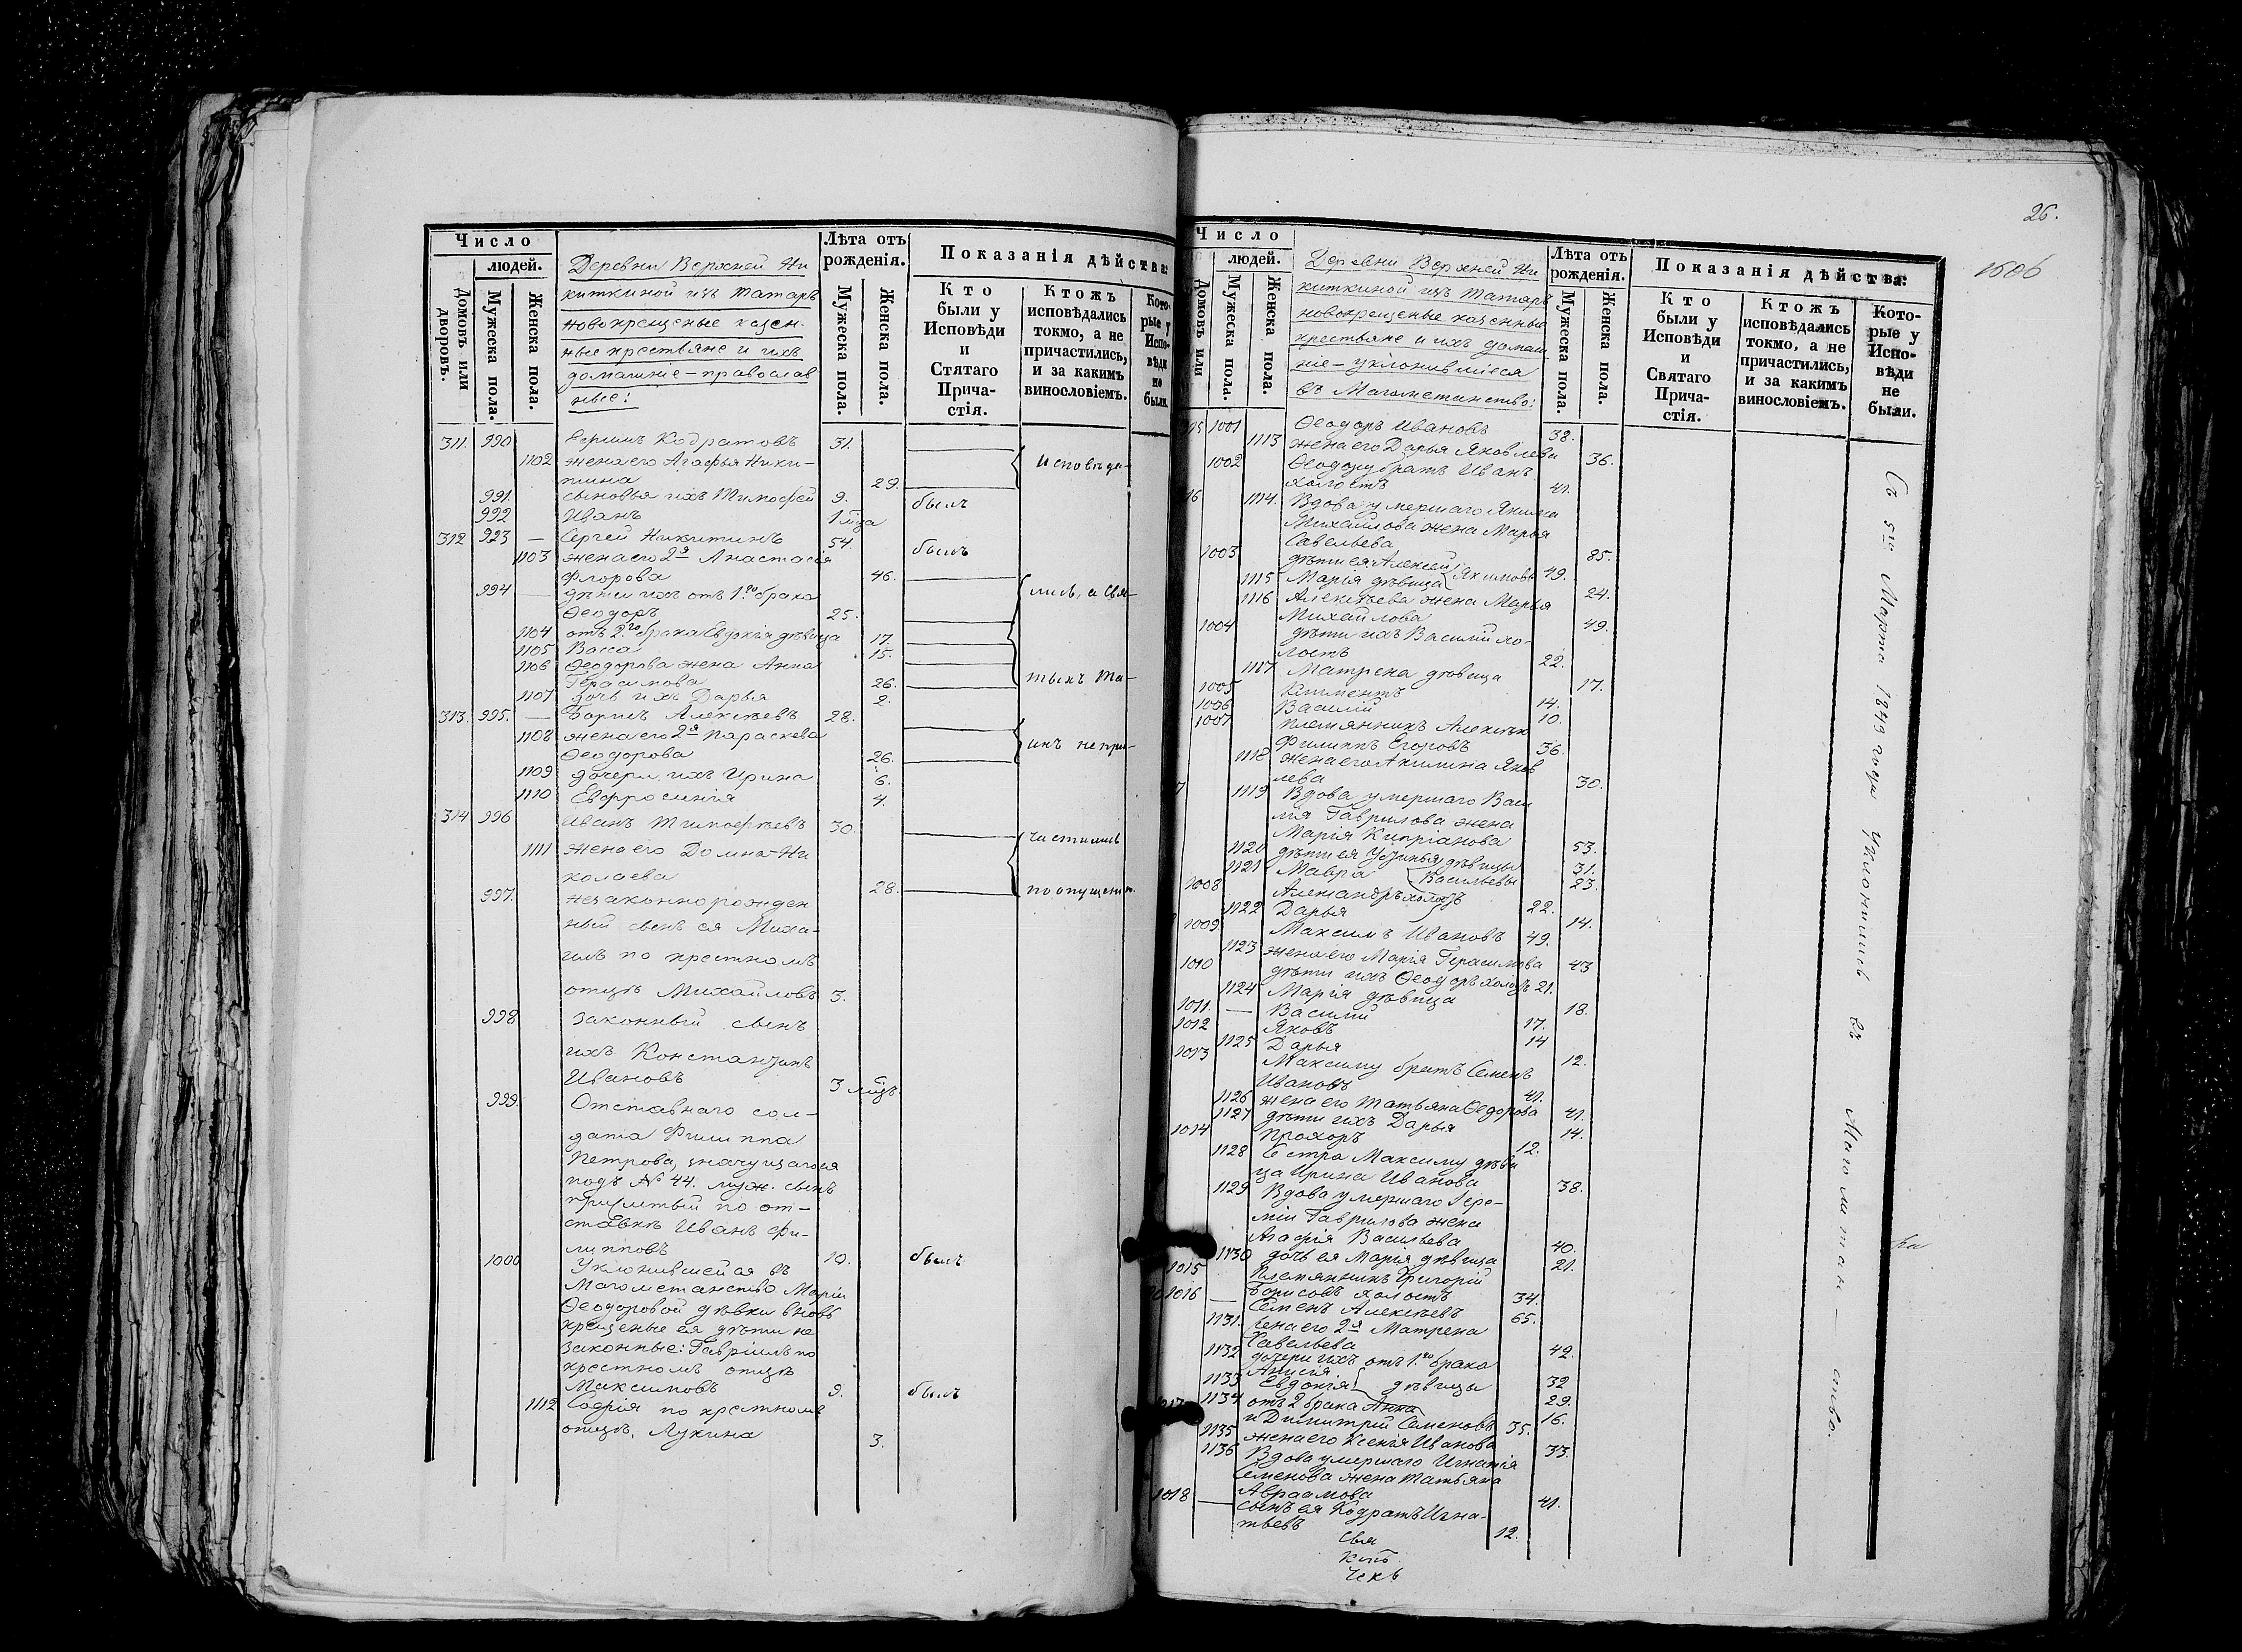 Число
людей.
Домовъ или дворовъ.
Мужеска пола.
Женска пола.
Деревни Верхней Ни
киткиной изъ татаръ
новокрещеные казен-
ные крестьяне и ихъ
домашніе – православ
ные:
Лѣта отъ рожденія.
Мужеска пола.
Женска пола.
Показанія дѣйства:
Кто были у Исповѣди и Стятаго Прича-стія.
Ктожъ исповѣдались токмо, а не причастились, и за какимъ винословіемъ.
Кото-рые у Испо-вѣди не были.
311. 990. Кодратовъ 31.
1102 жена его Агафья Ники-
тина 29. Исповѣда-
991. сыновья ихъ Тимофей 9. былъ
992 Иванъ 1
312 993 — Сергей Никитинъ 54. былъ
1103 жена его 2я Анастасія
Флорова 46.
994 — дѣти ихъ отъ 1го брака лись, а Свя-
Ѳеодоръ 25.
1104 отъ 2го брака Евдокія дѣвица 17.
1105 Васса 15.
1106 Ѳеодорова жена Анна
Герасимова 26. тыхъ Та-
1107 дочь ихъ Дарья 2.
313. 995. — Борисъ Алексѣевъ 28.
1108 жена его 2я Параскева
Ѳеодорова 26. инъ не при-
1109 дочери ихъ Ирина 6.
1110 Евфросинія 4.
314 996 Иванъ Тимофѣевъ 30.
частились
1111 жена его Домна Ни
колаева 28. по опущенію.
997. незаконнорожден
ный сынъ ея Миха-
илъ по крестномъ
отцѣ Михайловъ 3.
998 законный сынъ
ихъ Константинъ
Ивановъ 3 мѣц.
999. Отставнаго сол-
дата Филиппа
Петрова, значущагося
подъ № 44. муж. сынъ
прижитый по от-
ставкѣ Иванъ Фи-
липповъ 10. былъ
1000 Уклонившейся въ
Магометанство Маріи
Ѳеодоровой дѣвки вновь
крещеные ея дѣти не
законные: Гавріилъ по
крестномъ отцѣ
Максимовъ 9. былъ
1112 Софія по крестномъ
отцѣ, Лукина 3.
26.
1606
Число
людей.
Домовъ или
Мужеска пола.
Женска пола.
Деревни Верхней Ни
киткиной изъ татаръ
новокрещеные казенные
крестьяне и ихъ домаш
ніе – уклонившіеся
въ Магометанство:
Лѣта отъ рожденія.
Мужеска пола.
Женска пола.
Показанія дѣйства:
Кто были у Исповѣди и Святаго Прича-стія.
Ктожъ исповѣдались токмо, а не причастились, и за какимъ винословіемъ.
Кото-рые у Испо-вѣди не были.
1001 Ѳеодоръ Ивановъ 38.
1113 жена его Дарья Яковлева 36.
1002 Ѳеодору братъ Иванъ
холостъ 41.
1114. Вдова умершаго Якима
Михайлова жена Марья
Савельева 85.
1003 дѣти ея Алексей 49.
1115 Марія дѣвица Якимовы 24.
1116 Алексѣева жена Марья
Михайлова 49.
1004 дѣти ихъ Василій хо-
лостъ 22.
1117 Матрена дѣвица 17.
1005 Климентъ 14.
1006 Василій 10.
1007 племянникъ Алексѣю
Филиппъ Егоровъ 36.
1118 жена его Акилина Яков
лева 30.
1119 Вдова умершаго Васи
лія Гаврилова жена
Марія Кипріанова 53.
1120 дѣти ея Устинья дѣвицы 31.
1121 Мавра Васильевы 23.
1008 Александръ холостъ 22.
1122 Дарья 14.
1009 Максимъ Ивановъ 49.
1123 жена его Марія Герасимова 43
1010 дѣти ихъ Ѳеодоръ холостъ 21.
1124 Марія дѣвица 18.
1011. — Василій 17.
1012 Яковъ 14
1125 Дарья 12.
1013 Максиму братъ Семенъ
Ивановъ 41.
1126 жена его Татьяна Ѳедорова 41.
1127 дѣти ихъ Дарья 14.
1014 Прохоръ 12.
1128 Сестра Максиму дѣви
ца Ирина Иванова 38.
1129 Вдова умершаго Іере-
міи Гаврилова жена
Агафія Васильева 40.
1130 дочь ея Марія дѣвица 21.
1015 племянникъ Григорій
Борисовъ холостъ 34.
1016 — Семенъ Алексѣевъ 65.
1131. жена его 2я Матрена
Савельева 42.
1132 дочери ихъ отъ 1го брака
Анисія 32
1133 Евдокія дѣвицы 29.
1134 отъ 2 брака Анна 16.
1017 и Димитрій Семеновъ 35.
1135 жена его Ксенія Иванова 33.
1136 Вдова умершаго Игнатія
Семенова жена Татьяна
Авраамова 41.
1018 — сынъ ея Кодратъ Игна-
тьевъ 12.
Съ 5го Марта 1849 года уклонились въ Магометан – ство.